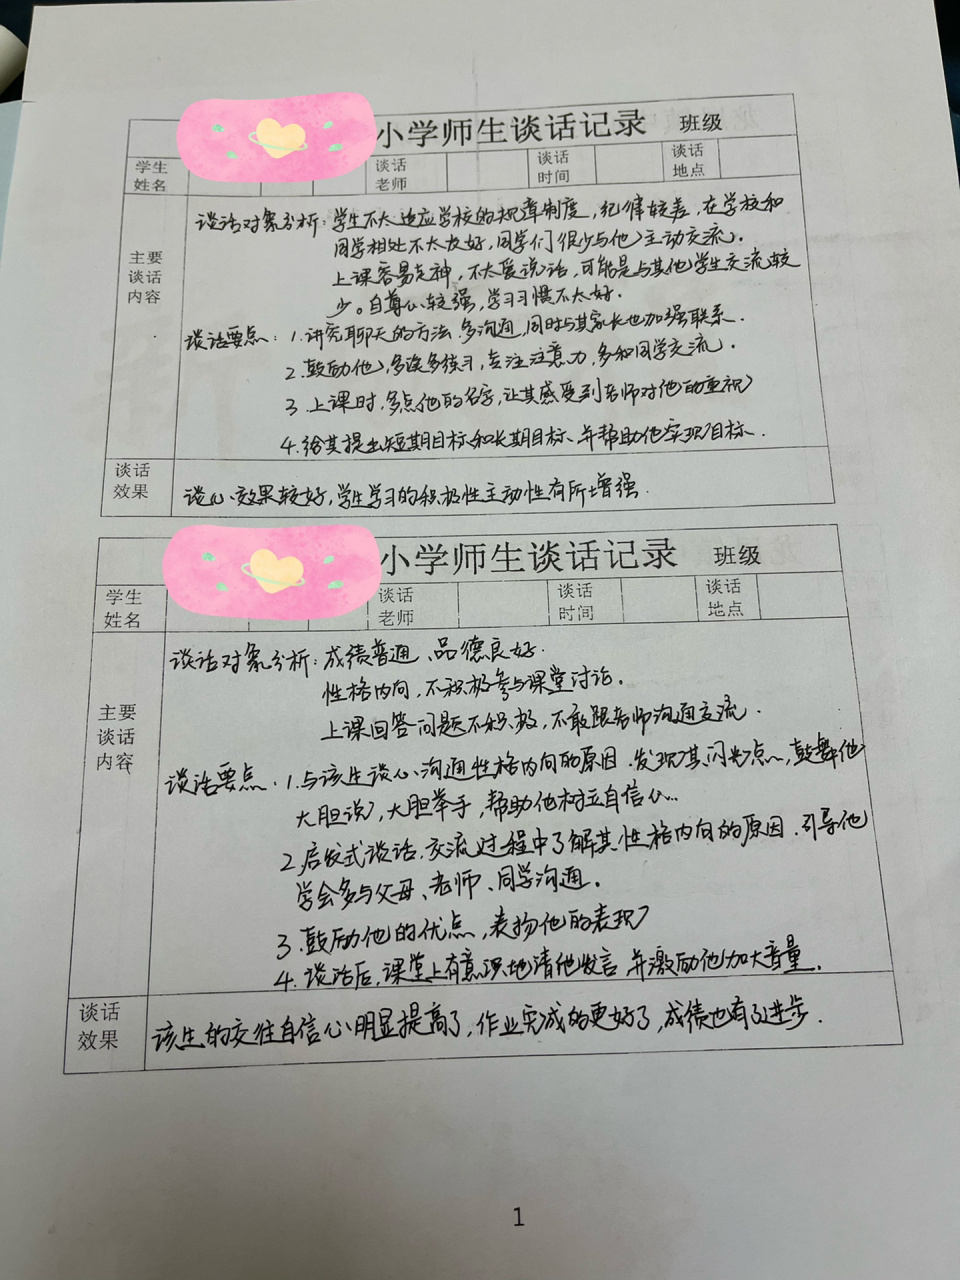 小学师生谈话记录 班级
学生姓名 谈话老师 谈话时间 谈话地点
主要谈话内容
谈话对象分析：学生不太适应学校的规章制度，纪律较差，在学校和
同学相处不太友好，同学们很少与他主动交流．
上课容易走神，不太爱说话，可能是与其他学生交流较
少。自尊心较强，学习习惯不太好．
谈话要点：1.讲究聊天的方法.多沟通，同时与其家长也加强联系．
2.鼓励他，多读多练习，专注注意力，多和同学交流．
3.上课时，多点他的名字，让其感受到老师对他的重视
4.给其提出短期目标和长期目标、并帮助他实现目标．
谈话效果
谈心效果较好，学生学习的积极性主动性有所增强．
小学师生谈话记录 班级
学生姓名 谈话老师 谈话时间 谈话地点
主要谈话内容
谈话对象分析：成绩普通、品德良好．
性格内向，不积极参与课堂讨论．
上课回答问题不积极，不敢跟老师沟通交流．
谈话要点．1.与该生谈心、沟通性格内向的原因．发现其闪光点，鼓舞他
大胆说，大胆举手，帮助他树立自信心..
2.启发式谈话.交流过程中了解其性格内向的原因．引导他
学会多与父母、老师、同学沟通。
3.鼓励他的优点，表扬他的表现
4.谈话后，课堂上有意识地请他发言，并激励他加大音量．
谈话效果
该生的交往自信心明显提高了，作业完成的更好了，成绩也有了进步．
1